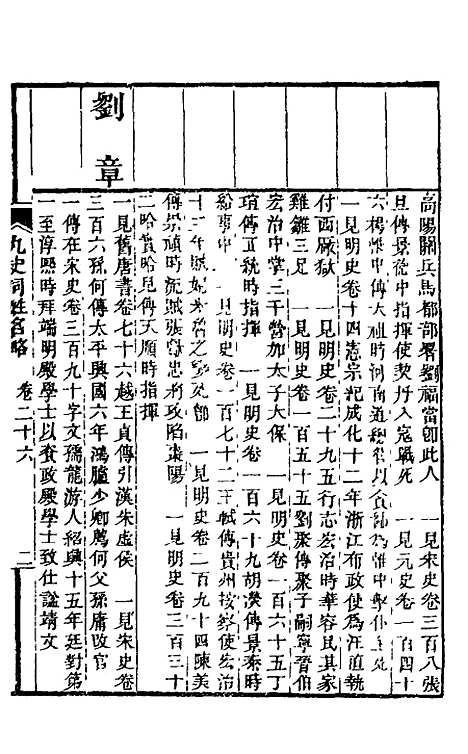 高陽關兵馬都部署劉福當卽此人　一見宋史卷三百八張
旦傳景德中指揮使契丹入寇戰死　一見元史卷一百四十
六楊惟中傳太祖時河南道總
一見明史卷十四憲宗紀成化十二年浙江布政使爲汪直執
付西厰獄　一見明史卷二十九五行志宏治時華容民其家
雞雛三足　一見明史卷一百五十五劉聚傳聚子嗣寧晉伯
宏治中掌三千營加太子太保　一見明史卷一百六十五丁
瑄傳正統時指揮　一見明史卷一百六十九胡濙傳景泰時
給事中　一見明史卷一百七十二王軾傳貴州按察使宏治
十三年　一見明史卷二百九十四陳美
傳崇禎時張獻忠將攻陷棗陽　一見明史卷三百三十
二哈密哈見傳天順時指揮
劉章
一見舊唐書卷七十六越王貞傳引漢朱虛侯　一見宋史卷
三百六孫何傳太平興國六年鴻臚少卿薦何父孫庸改官
一傳在宋史卷三百九十字文孺龍游人紹興十五年廷對第
一至淳熙時拜端明殿學士以資政殿學士致仕諡靖文
九史同姓名略　卷二十六　二